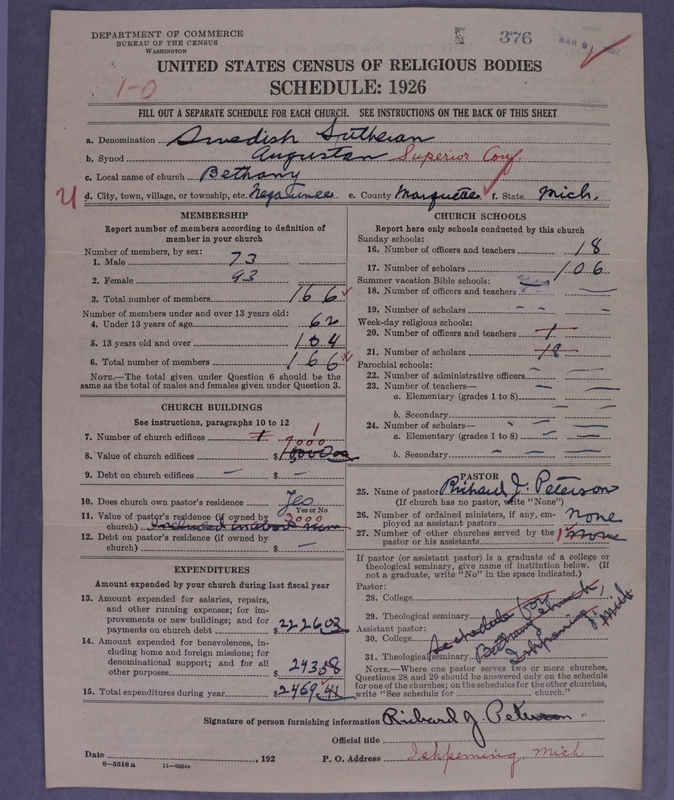 DEPARTMENT OF COMMERCE
BUREAU OF THE CENSUS
WASHINGTON
376
MAR 9
1-0
UNITED STATES CENSUS OF RELIGIOUS BODIES
SCHEDULE: 1926
FILL OUT A SEPARATE SCHEDULE FOR EACH CHURCH. SEE INSTRUCTIONS ON THE BACK OF THIS SHEET
a. Denomination Swedish Lutheran
b. Synod Augustan Superior Conf.
c. Local name of church Bethany
d. City, town, village, or township, etc. Negaunee e. County Marquette f. State Mich.
MEMBERSHIP
Report number of members according to definition of member in your church
Number of members, by sex:
1. Male 73
2. Female 93
3. Total number of members 166
Number of members under and over 13 years old:
4. Under 13 years of age 62
5. 13 years old and over 104
6. Total number of members 166
NOTE.—The total given under Question 6 should be the same as the total of males and females given under Question 3.
CHURCH BUILDINGS
See instructions, paragraphs 10 to 12
7. Number of church edifices 1 1
8. Value of church edifices $ 7000
9. Debt on church edifices — $ —
10. Does church own pastor's residence Yes
Yes or No
11. Value of pastor's residence (if owned by church) 3000 Included in above sum
12. Debt on pastor's residence (if owned by church) $ —
EXPENDITURES
Amount expended by your church during last fiscal year
13. Amount expended for salaries, repairs, and other running expenses; for improvements or new buildings; and for payments on church debt $ 2226.03
14. Amount expended for benevolences, including home and foreign missions; for denominational support; and for all other purposes $ 243.38
15. Total expenditures during year $ 2469.41
CHURCH SCHOOLS
Report here only schools conducted by this church
Sunday schools:
16. Number of officers and teachers 18
17. Number of scholars 106
Summer vacation Bible schools:
18. Number of officers and teachers —
19. Number of scholars - - —
Week-day religious schools:
20. Number of officers and teachers 1
21. Number of scholars 18
Parochial schools:
22. Number of administrative officers — —
23. Number of teachers—
a. Elementary (grades 1 to 8) — —
b. Secondary — —
24. Number of scholars—
a. Elementary (grades 1 to 8) — —
b. Secondary — —
PASTOR
25. Name of pastor Richard J. Peterson
(If church has no pastor, write "None")
26. Number of ordained ministers, if any, employed as assistant pastors None
27. Number of other churches served by the pastor or his assistants 1 None
If pastor (or assistant pastor) is a graduate of a college or theological seminary, give name of institution below. (If not a graduate, write "No" in the space indicated.)
Pastor:
28. College
29. Theological seminary
Assistant pastor:
30. College
31. Theological seminary
See schedule for Bethany Church, Ishpeming,
NOTE.—Where one pastor serves two or more churches, Questions 28 and 29 should be answered only on the schedule for one of the churches; on the schedules for the other churches, write "See schedule for church."
Signature of person furnishing information Richard J. Peterson
Official title
Date , 192 P. O. Address Ishpeming, Mich
8-5518a